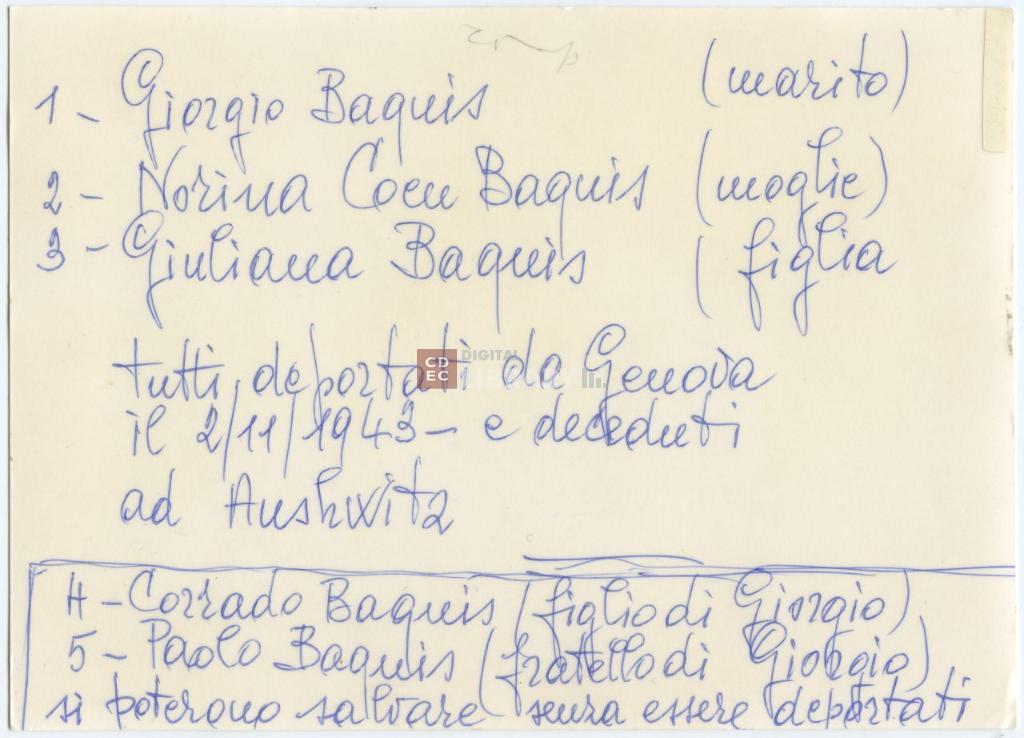 1 - Giorgio Baquis (marito)
2 - Norina Coen Baquis (moglie)
3 - Giuliana Baquis (figlia
tutti deportati da Genova
il 2/11/1943 - e deceduti
ad Aushwitz
4 - Corrado Baquis (figlio di Giorgio)
5 - Paolo Baquis (fratello di Giorgio)
si poterono salvare senza essere deportati
CDEC DIGITAL LIBRARY